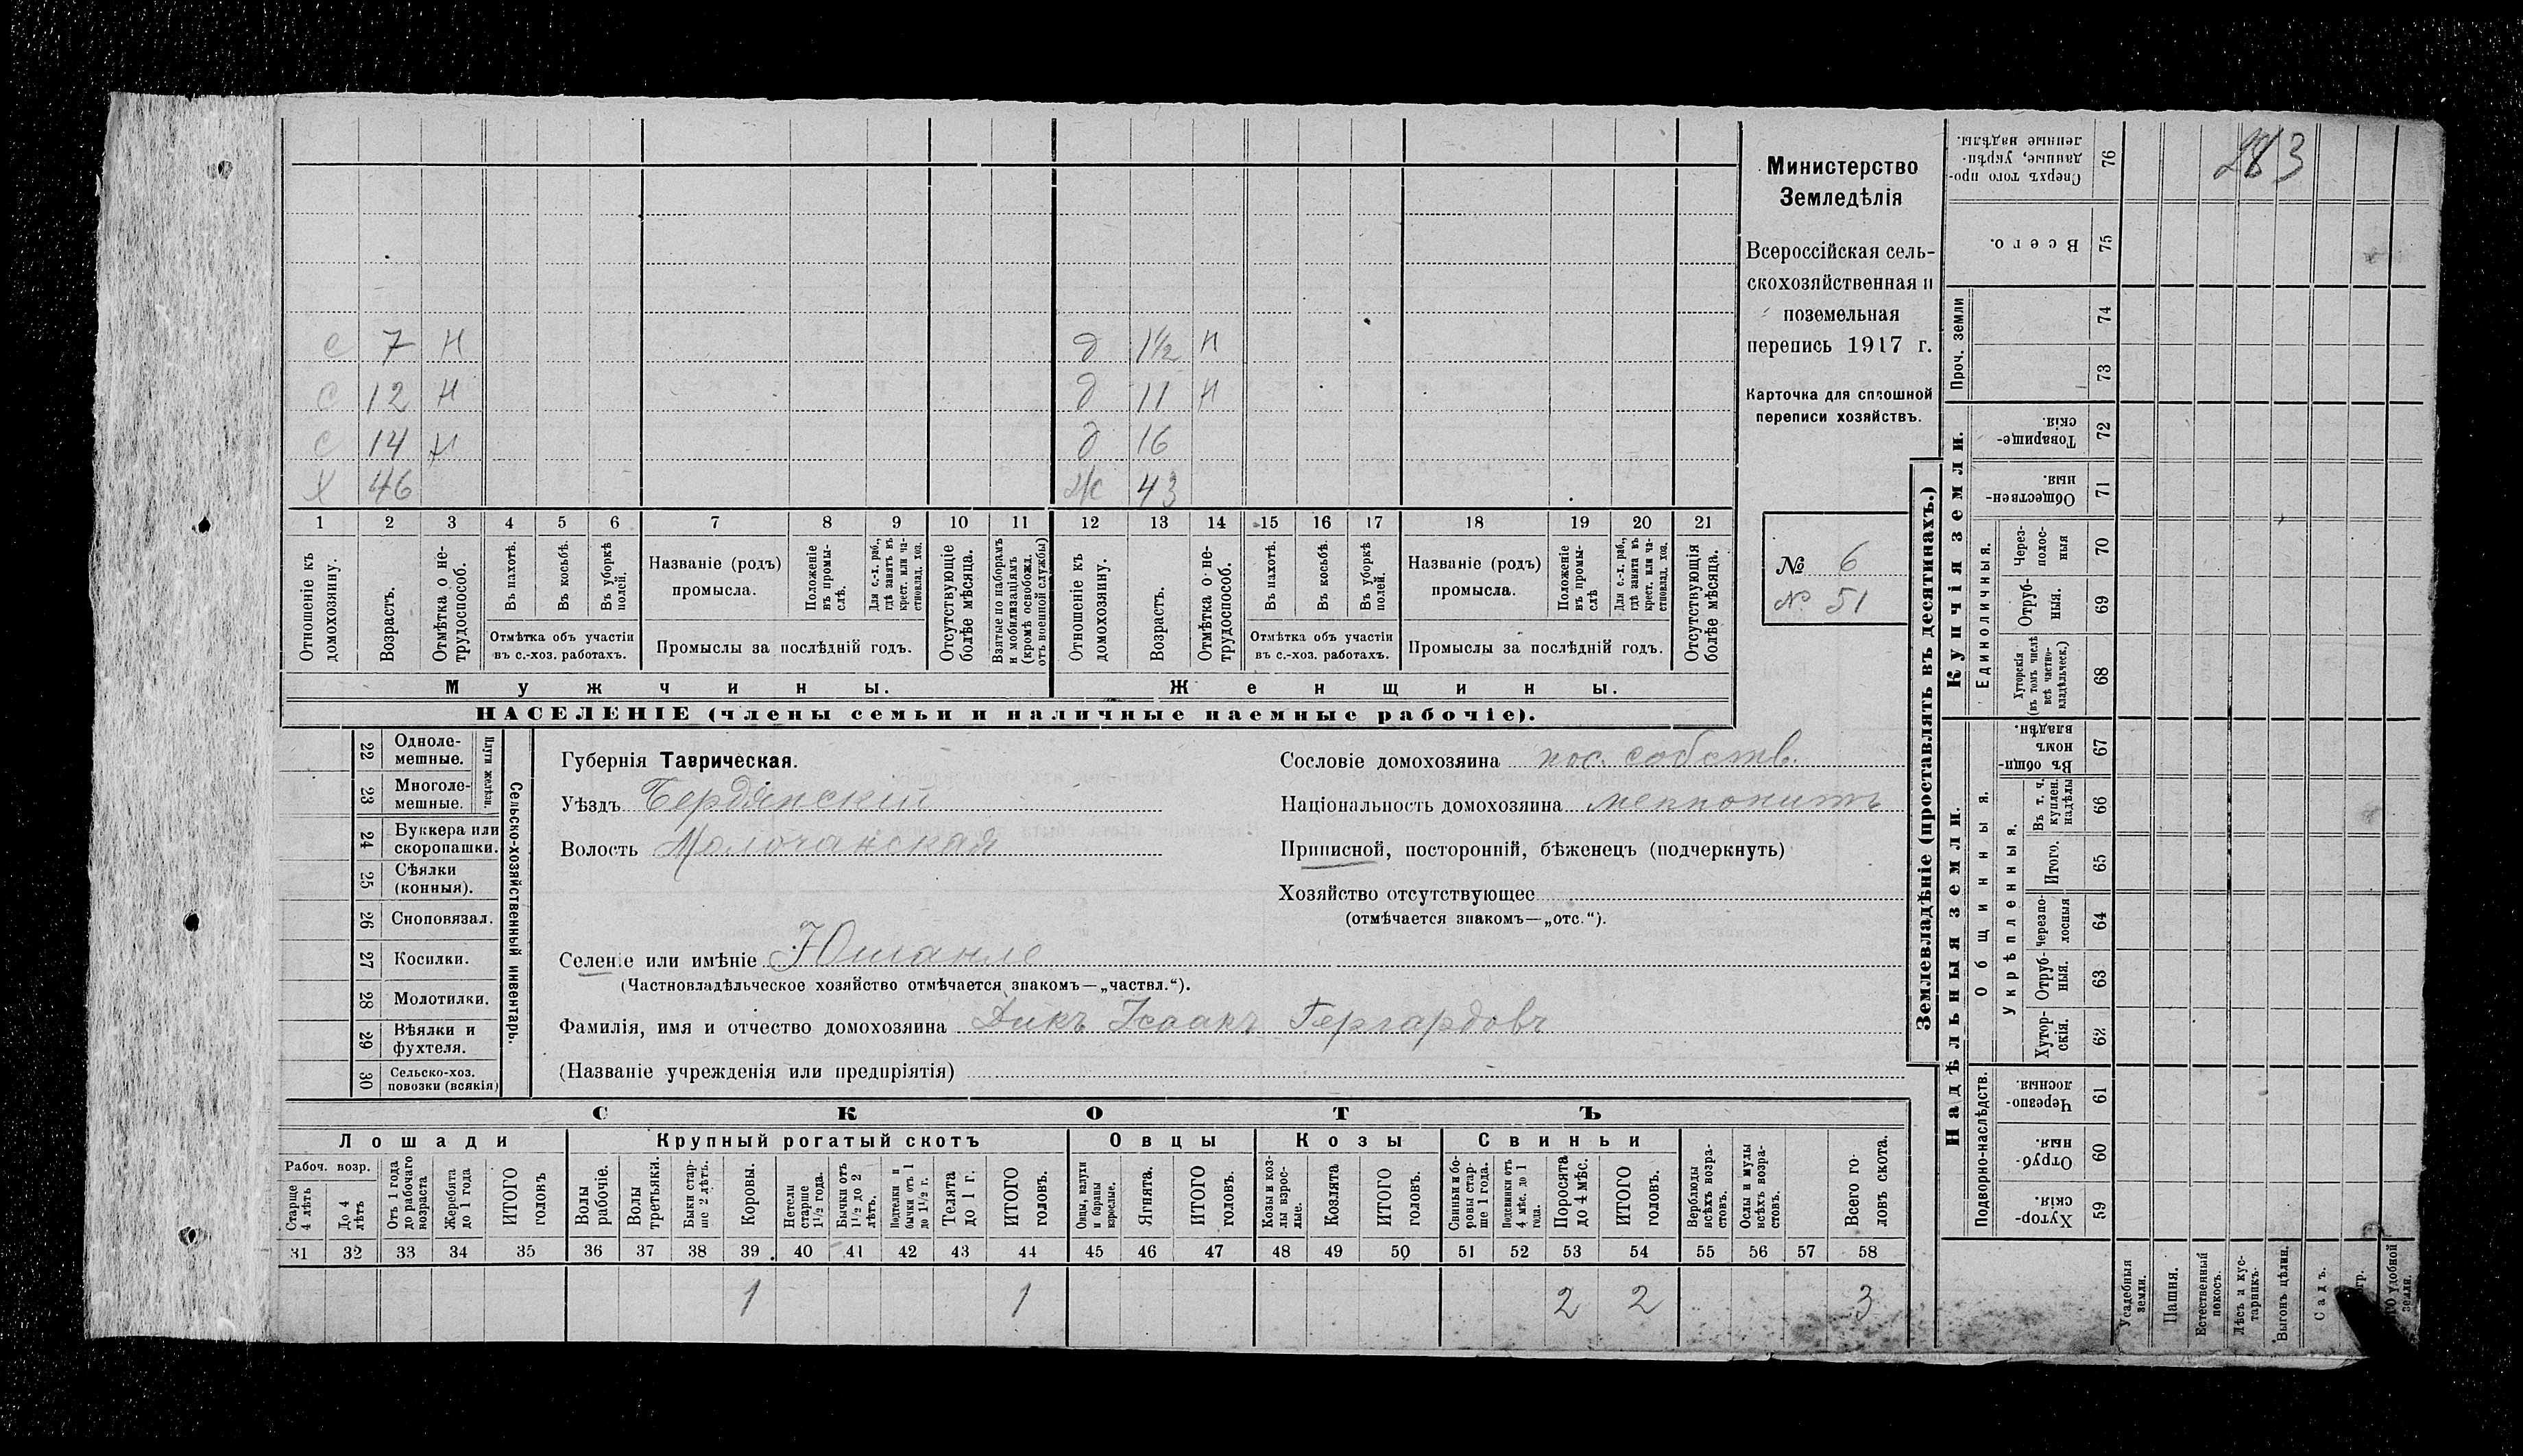 283
с 7 н
д 1½ н
с 12 н
д 11 н
с 14 н
д 16
х 46
ж 43
1 2 3 4 5 6 7 8 9 10 11 12 13 14 15 16 17 18 19 20 21
Отношеніе къ домохозяину.
Возрастъ.
Отмѣтка о не-трудоспособ.
Въ пахотѣ.
Въ косьбѣ.
Въ уборкѣ полей.
Отмѣтка объ участіи
въ с.-хоз. работахъ.
Названіе (родъ)
промысла.
Положеніе въ промы-слѣ.
Для с.-х. раб., гдѣ занятъ въ крест. или ча-стновлад. хоз.
Промыслы за послѣдній годъ.
Отсутствующіе болѣе мѣсяца.
Взятые по наборамъ и мобилизаціямъ (кромѣ освобожд. отъ военной службы)
Отношеніе къ домохозяину.
Возрастъ.
Отмѣтка о не-трудоспособ.
Въ пахотѣ.
Въ косьбѣ.
Въ уборкѣ полей.
Отмѣтка объ участіи
въ с.-хоз. работахъ.
Названіе (родъ)
промысла.
Положеніе въ промы-слѣ
Для с.-х. раб., гдѣ занята въ крест. или ча-стновлад. хоз.
Промыслы за послѣдній годъ.
Отсутствующія болѣе мѣсяца.
Мужчины.
Женщины.
НАСЕЛЕНІЕ (члены семьи и наличные наемные рабочіе).
Министерство
Земледѣлія
Всероссійская сель-
скохозяйственная и
поземельная
перепись 1917 г.
Карточка для сплошной
переписи хозяйствъ.
№ 6
№ 51
22 Одноле-мешные.
23 Многоле-мешные.
Плуги желѣзн.
24 Буккера или скоропашки.
25 Сѣялки (конныя).
26 Сноповязал.
27 Косилки.
28 Молотилки.
29 Вѣялки и фухтеля.
30 Сельско-хоз. повозки (всякія)
Сельско-хозяйственный инвентарь.
Губернія Таврическая.
Уѣздъ Бердянскій
Волость Молочанская
Селеніе или имѣніе Юшанле
(Частновладѣльческое хозяйство отмѣчается знакомъ—„частвл.“).
Фамилія, имя и отчество домохозяина Дикъ Исаакъ Гергардовъ
(Названіе учрежденія или предпріятія)
Сословіе домохозяина пос. собств.
Національность домохозяина меннонитъ
Приписной, посторонній, бѣженецъ (подчеркнуть)
Хозяйство отсутствующее
(отмѣчается знакомъ—„отс.“).
СКОТЪ
Лошади
Крупный рогатый скотъ
Овцы
Козы
Свиньи
Рабоч. возр.
Старше 4 лѣтъ
До 4 лѣтъ
Отъ 1 года до рабочаго возраста
Жеребята до 1 года
ИТОГО головъ
Волы рабочіе.
Волы третьяки.
Быки стар-ше 2 лѣтъ.
Коровы.
Нетели старше 1½ года.
Бычки отъ 1½ до 2 лѣтъ.
Подтелки и бычки отъ 1 до 1½ г.
Телята до 1 г.
ИТОГО головъ.
Овцы, валухи и бараны взрослые.
Ягнята.
ИТОГО головъ.
Козы и коз-лы взрос-лые.
Козлята
ИТОГО головъ.
Свиньи и бо-ровы стар-ше 1 года.
Подсвинки отъ 4 мѣс. до 1 года.
Поросята до 4 мѣс.
ИТОГО головъ.
Верблюды всѣхъ возра-стовъ.
Ослы и мулы всѣхъ возра-стовъ.
Всего го-ловъ скота.
31 32 33 34 35 36 37 38 39 40 41 42 43 44 45 46 47 48 49 50 51 52 53 54 55 56 57 58
1 1 2 2 3
Землевладѣніе (проставлять въ десятинахъ.)
Купчія земли.
Надѣльныя земли.
Сверхъ того про-данные, укрѣп-ленные надѣлы. 76
Всего. 75
Проч. земли 74 73
Товарище-скія 72
Обществен-ныя. 71
Единоличныя.
Через-полос-ныя 70
Отруб-ныя. 69
Хуторскія (въ томъ числѣ всѣ частно-владѣльческ.) 68
Общинныя.
Въ общин-номъ владѣн. 67
Укрѣпленныя.
Въ т. ч. куплен. надѣлы 66
Итого. 65
Черезпо-лосныя 64
Отруб-ныя. 63
Хутор-скія. 62
Подворно-наслѣдств.
Черезпо-лосныя. 61
Отруб-ныя. 60
Хутор-скія. 59
Усадебныя земли.
Пашня.
Естественный покосъ.
Лѣсъ и кус-тарникъ.
Выгонъ цѣлин.
Садъ.